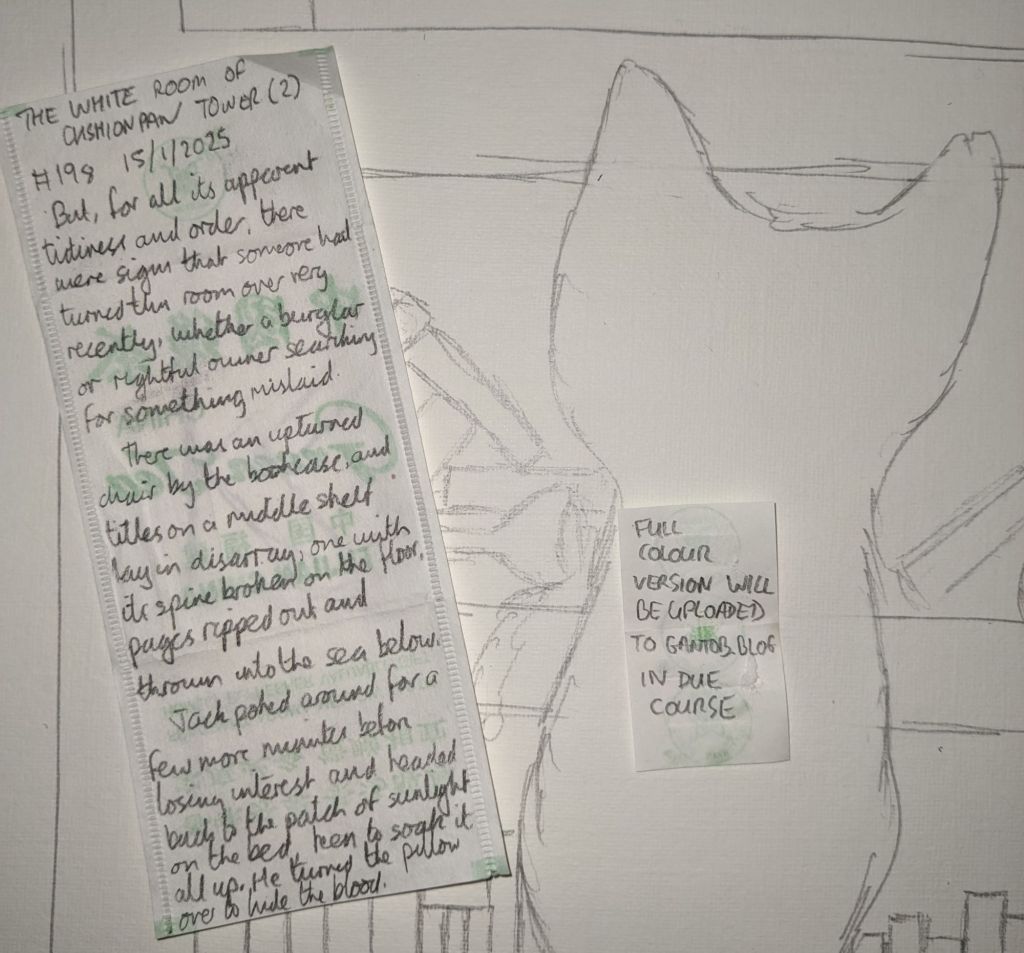 THE WHITE ROOM OF
CUSHIONPAN TOWER (2)
#198 15/1/2025
But, for all its apparent
tidiness and order, there
were signs that someone had
turned this room over very
recently, whether a burglar
or rightful owner searching
for something mislaid.
There was an upturned
chair by the bookcase, and
titles on a middle shelf
lay in disarray, one with
its spine broken on the floor,
pages ripped out and
thrown into the sea below.
Jack poked around for a
few more minutes before
losing interest and headed
back to the patch of sunlight
on the bed, keen to soak it
all up. He turned the pillow
over to hide the blood.
FULL
COLOUR
VERSION WILL
BE UPLOADED
TO GANTOB.BLOG
IN DUE
COURSE